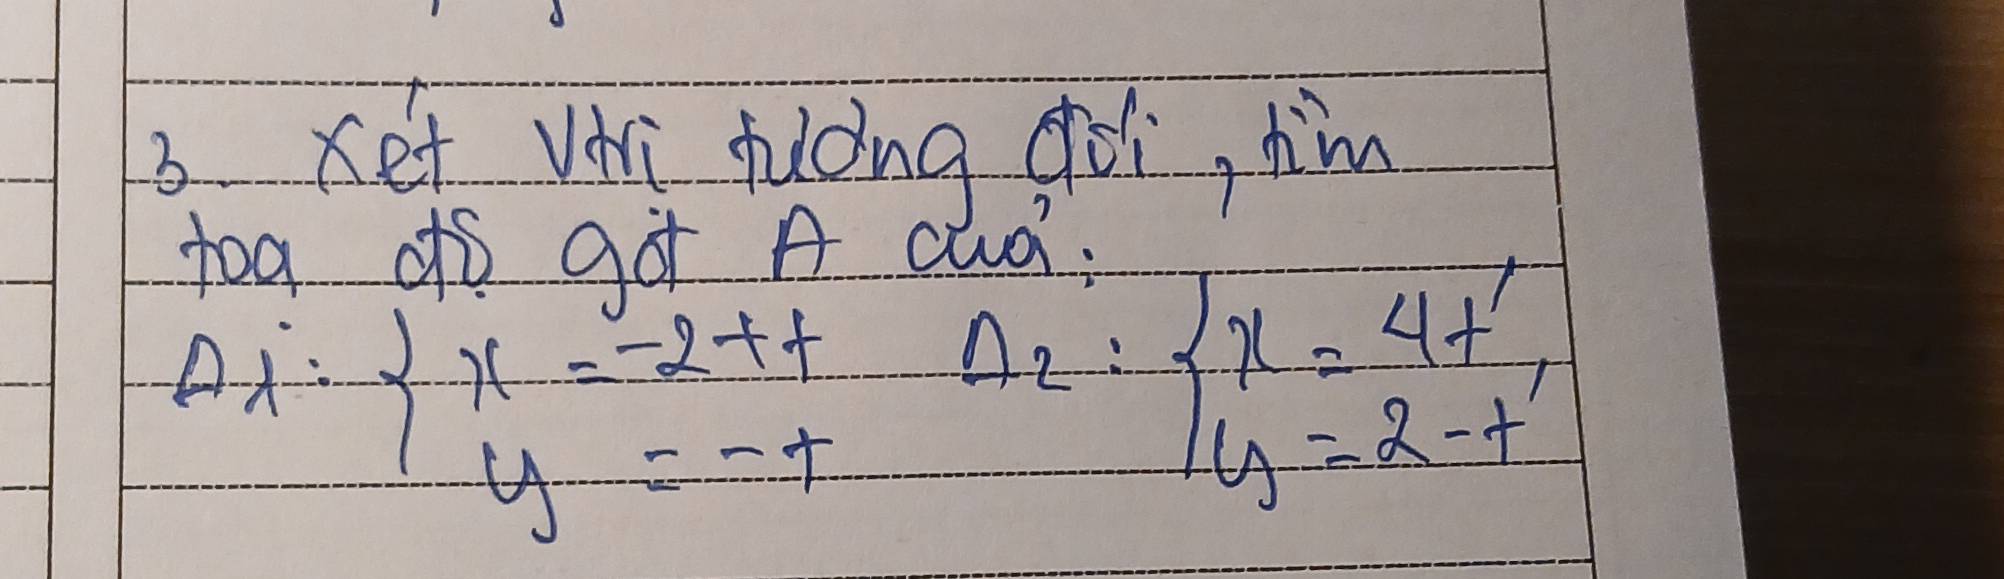 3. Xét vtrí tương đối, tìm
toạ độ gđ A của:
Δ1: { x = -2+t Δ2: { x = 4t'
y = -t y = 2-t'